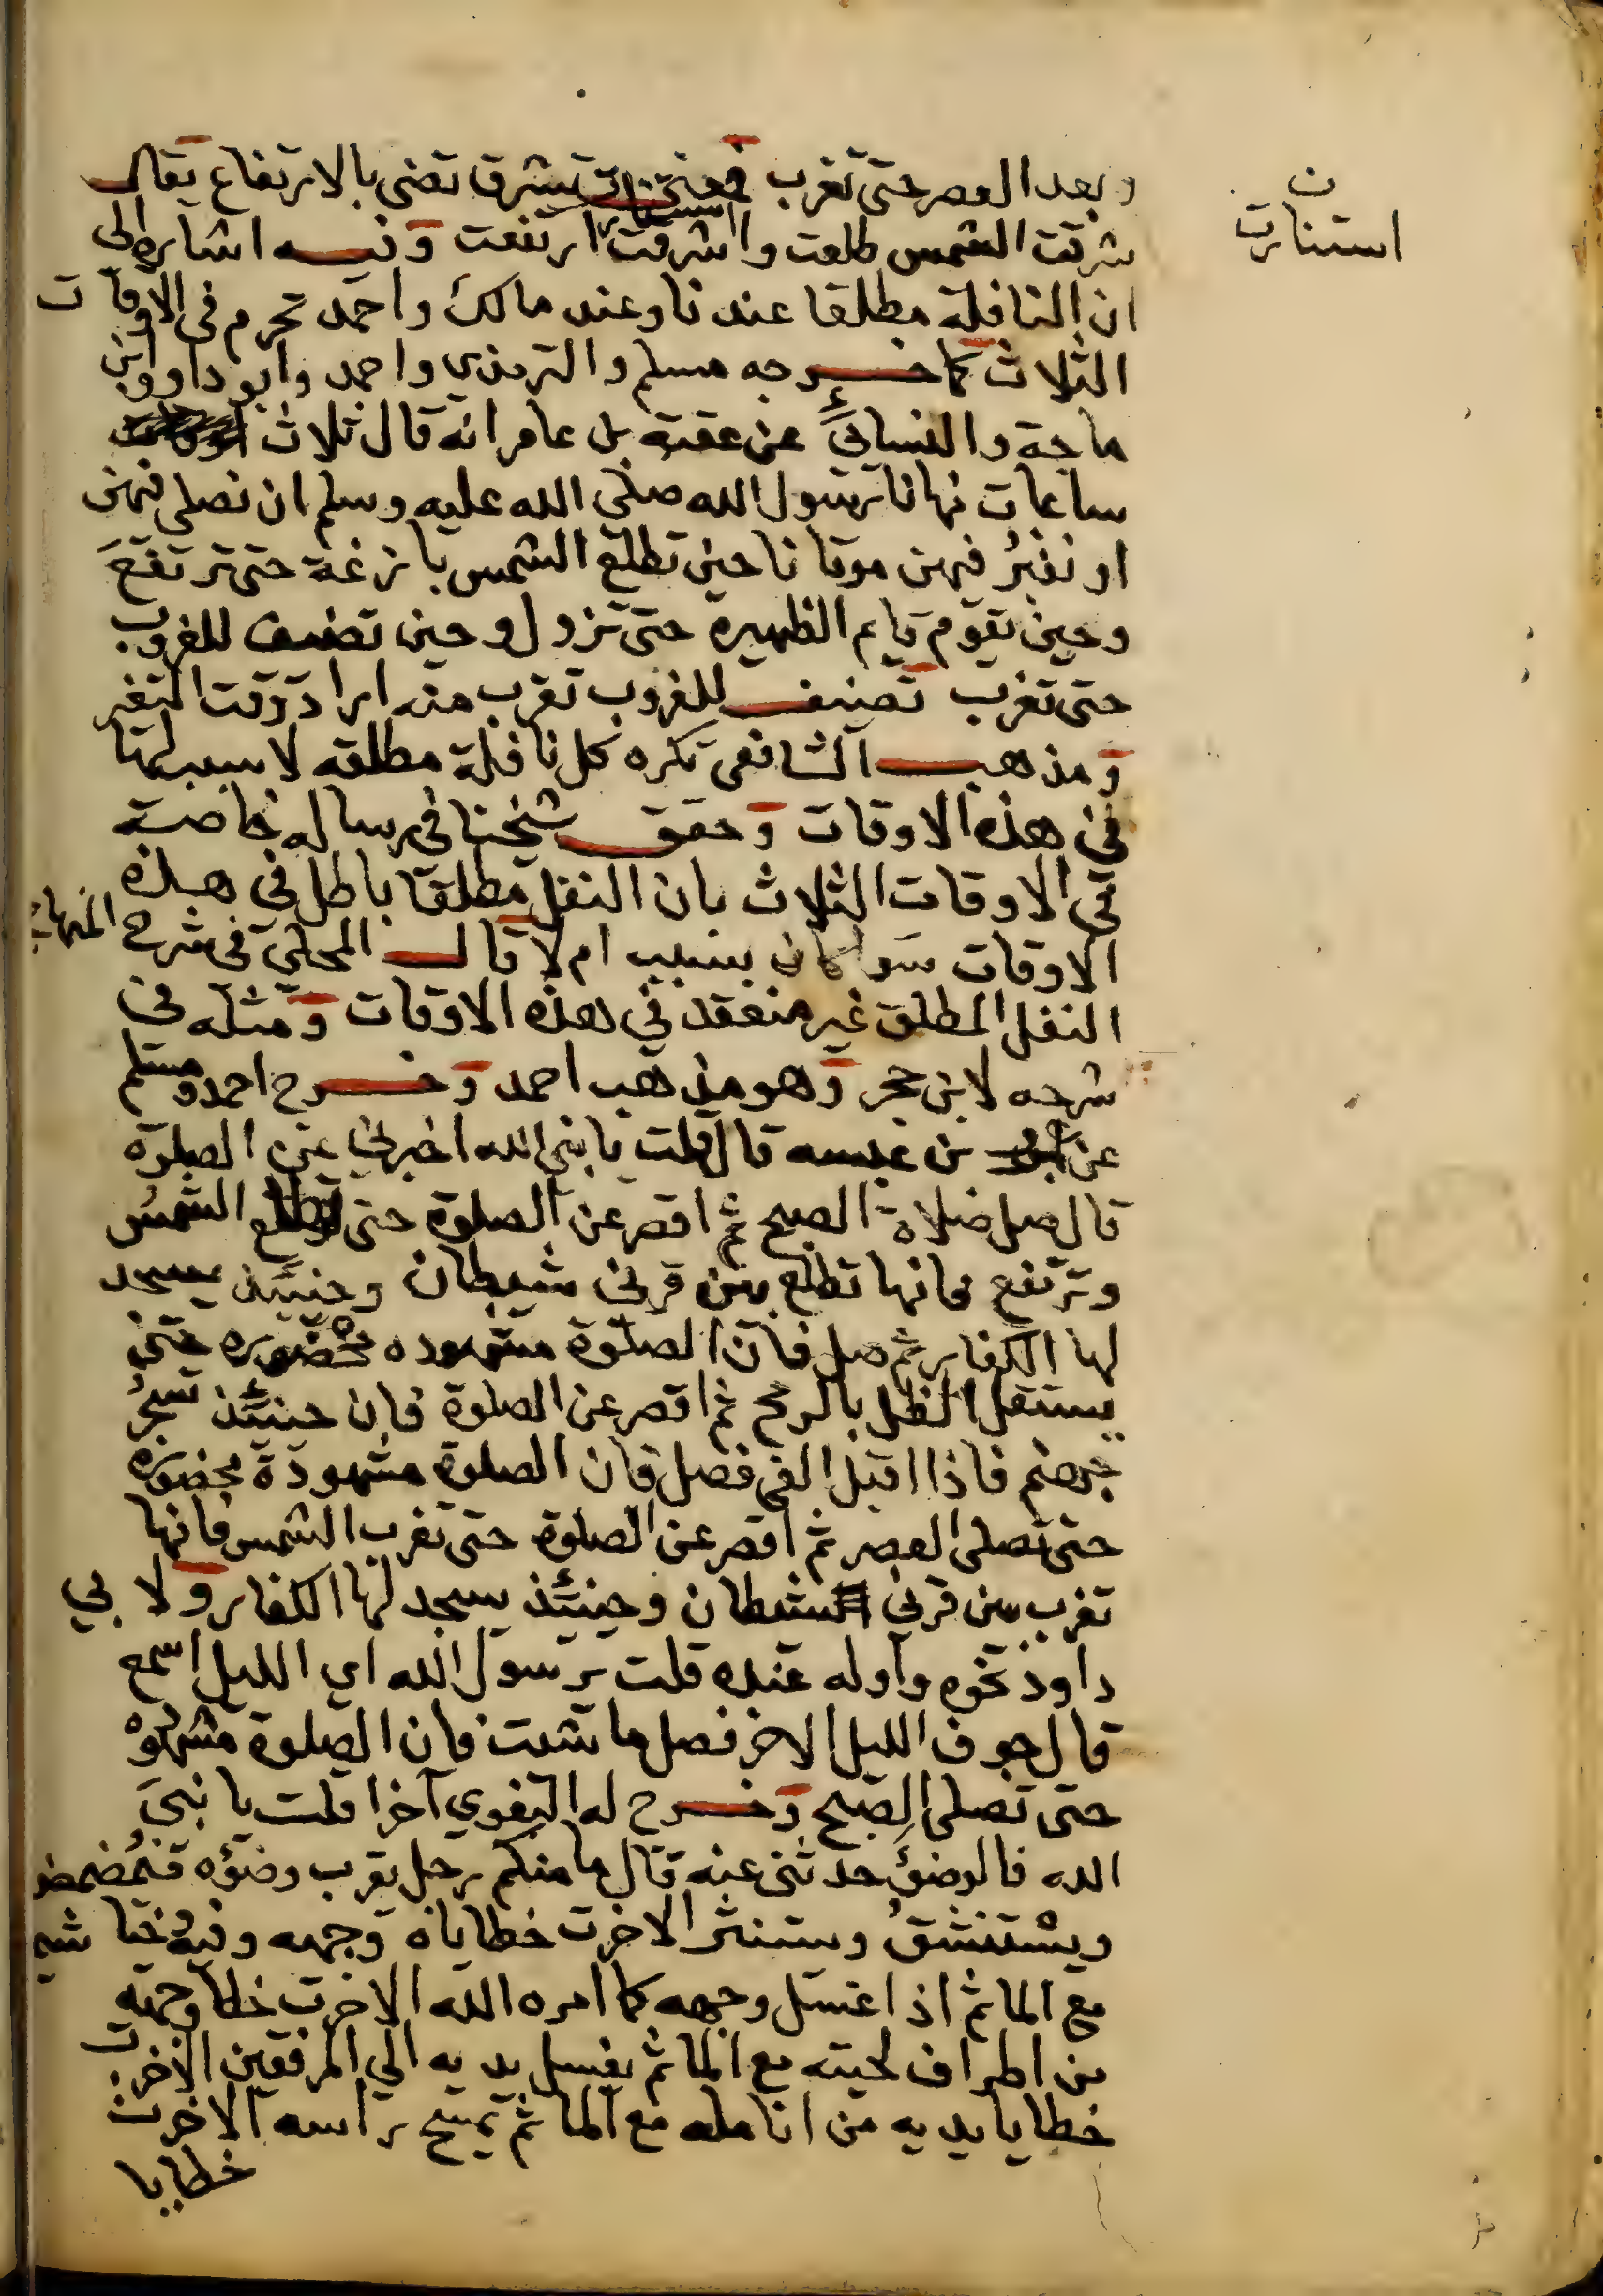 ن
استنارت
وبعد العصر حتى تغرب فمعنى تشرق تضى بالارتفاع يقال
شرقت الشمس طلعت واشرقت ارتفعت وفيه اشاره الى
ان النافلة مطلقا عندنا وعند مالك واحمد تحرم فى الاوقات
الثلاث كما خرجه مسلم والترمذي واحمد وابو داوو وابن
ماجة والنسائي عن عقبه بن عامر انه قال ثلاث
ساعات نهانا رسول الله صلى الله عليه وسلم ان نصلى فيهن
او نقبُر فيهن موتانا حين تطلع الشمس بازغة حتى ترتفعَ
وحين يقوم قايم الظهيرة حتى تزول وحين تضيف للغروب
حتى تغرب تضيف للغروب تقرب منه اراد وقت التغير
ومذهب الشافعى تكره كل نافلة مطلقه لا سبب لها
في هذه الاوقات وحقق شيخنا في رساله خاصة
في الاوقات الثلاث بان النفل مطلقا باطل في هذه
الاوقات سوا كان بسبب ام لا قال المحلي فى شرح المنهاج
النفل المطلق غير منعقد في هذه الاوقات ومثله في
شرحه لابن حجر وهو مذهب احمد وخرج احمد ومسلم
عن بن عبسه قال قلت يا نبي الله اخبرني عن الصلوة
قال صل صلاة الصبح ثم اقصر عن الصلوة حتى تطلع الشمس
وترتفع فانها تطلع بين قرني شيطان وحينئذ يسجد
لها الكفار ثم صل فان الصلوة مشهوده محْضوره حتى
يستقل الظل بالرمح ثم اقصر عن الصلوة فان حينئذ تسجرُ
جهنم فاذا اقبل الفى فصل فان الصلوة مشهودة محضوره
حتى تصلى العصر ثم اقصر عن الصلوة حتى تغرب الشمس فانها
تغرب بين قرني شيطان وحينئذ يسجد لها الكفار ولا بي
داود نحوه واوله عنده قلت يرسول الله اي الليل اسمع
قال جوف الليل الاخر فصل ما شئت فان الصلوة مشهوده
حتى تصلى الصبح وخرج له البغوي آخرا قلت يا نبيَ
الله فالوضؤ حدثنى عنه قال ما منكم رجل يقرب وضؤه فيُمضمض
ويسْتنشقُ ويستنثر الاخرت خطاياه وجهه وفيه وخياشيمه
مع الما ثم اذا غسل وجهه كما امره الله الاخرت خطا وجهه
من اطراف لحيته مع الما ثم يغسل يديه الي المرفقين الاخرت
خطايا يديه من انامله مع الما ثم يمسح راسه الاخرت
خطايا